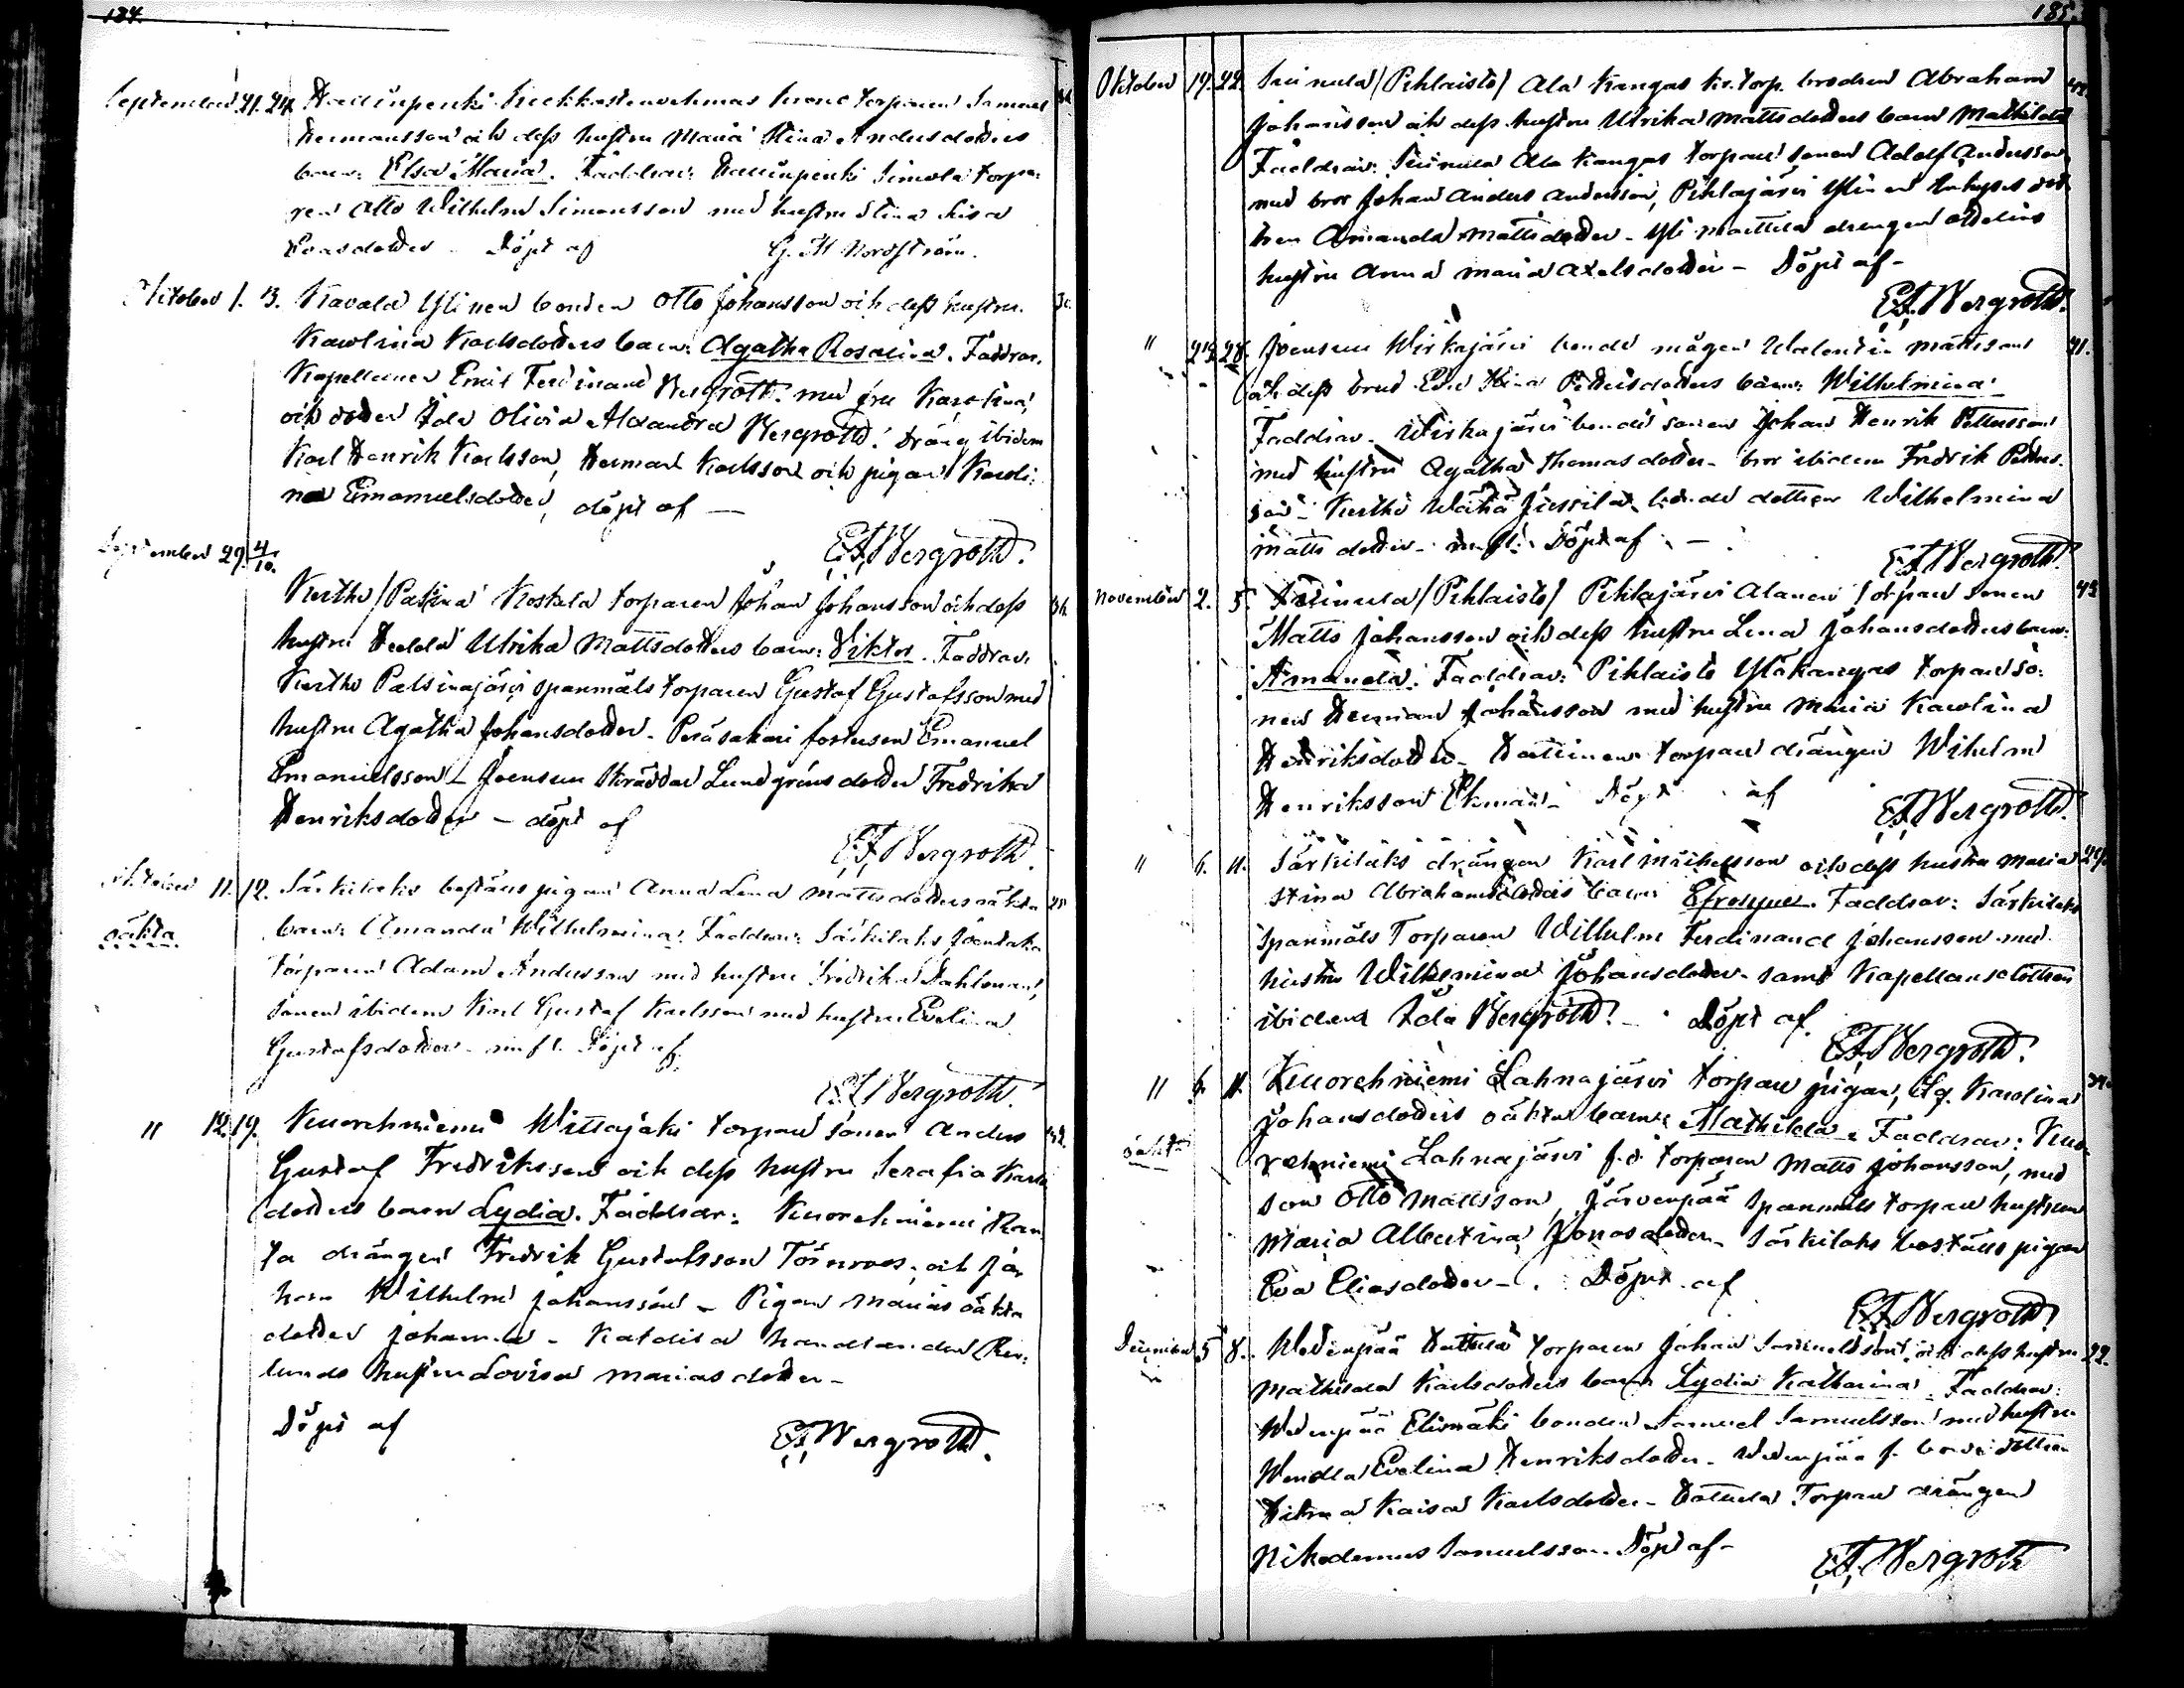 184.
September 21. 24. Hauunpenki krono torparen Samuel
Hermansson och dess hustru Maria Stina Andersdotters
barn: Elsa Maria. Faddrar: Hauunpenki Simola torpa-
ren Otto Wilhelm Simonsson med hustru Stina Lisa
Evasdotter Döpt af G. H. Nordström.
Oktober 1. 3. Kavala Ylinen bonden Otto Johansson och dess hustru
Karolina Karlsdotters barn: Agatha Rosalina. Faddrar.
Kapellanen Emil Ferdinand Bergroth med fru Karolina,
och dotter Ida Olivia Alexandra Bergroth. Dräng ibidem
Karl Henrik Karlsson, Herman Karlsson och pigan Karoli-
na Emanuelsdotter, döpt af —
E.F. Bergroth.
September 29. 4/10.
Kertho / Koskela torparen Johan Johansson och dess
hustru Hedda Ulrika Mattsdotters barn: Viktor. Faddrar.
Kertho Palsinajärvi spanmåls torparen Gustaf Gustafsson med
hustru Agatha Johansdotter. Emanuel
Emanuelsson – Joensuu skräddar Lundgréns dotter Fredrika
Henriksdotter – döpt af
E.F. Bergroth
Oktober 11. 12. Särkilaks pigan Anna Lena Mattsdotters oäkta
oäkta barn: Amanda Wilhelmina. Faddrar: Särkilaks
torparen Adam Andersson med hustru Fredrika Dahlman,
sonen ibidem Karl Gustaf Karlsson med hustru Evelina
Gustafsdotter. Döpt af.
E.F. Bergroth.
" 12. 19. Kuorehniemi Wittajäki torpare sonen Anders
Gustaf Fredriksson och dess hustru Serafia Karls
dotters barn Lydia. Faddrar: Kuorehniemi Ran
ta drängen Fredrik Gustafsson Törnroos, och Jo
han Wilhelm Johansson – Pigan Marias oäkta
dotter Johanna – Katdisa
lunds hustru Lovisa Mariasdotter –
Döpt af E.F. Bergroth.
185.
Oktober 17. 22. / Pihlaisto / Ala Kangas kr. torp. brodren Abraham
Johansson och dess hustru Ulrika Mattsdotters barn Mathilda
Faddrar: Ala Kangas torpare sonen Adolf Andersson
med bror Johan Anders Andersson, Pihlajärvi Ylinen
Amanda Mattsdotter – Yli drengen
hustru Anna Maria Axelsdotter – Döpt af –
E.F. Bergroth.
" 24. 28. Joensuu Wirkajärvi bonde mågen Walentin Mattsson
och dess brud Eva Stina Pettersdotters barn: Wilhelmina
Faddrar. Wirkajärvi bonde sonen Johan Henrik Pettersson
med hustru Agatha Thomasdotter – bror ibidem Fredrik Petters-
son – Kertho Wähä Jussila bonde dottren Wilhelmina
Mattsdotter – Döpt af –
E.F. Bergroth.
November 2. 5. / Pihlaisto / Pihlajärvi Alanen torpare sonen
Matts Johansson och dess hustru Lena Johansdotters barn:
Amanda. Faddrar: Pihlaisto Yläkangas torpare so-
nen Herman Johansson med hustru Maria Karolina
Henriksdotter – torpare drängen Wihelm
Henriksson Ekman – Döpt af
E.F. Bergroth.
" 6. 11. Särkilaks drängen Karl Mickelsson och dess hustru Maria
Stina Abrahamsdotters barn: Efrosyne. Faddrar: Särkilaks
Spanmåls Torparen Wilhelm Ferdinand Johansson med
hustru Wilhelmina Johansdotter – samt Kapellansdottren
ibidem Ida Bergroth. – Döpt af
E.F. Bergroth.
" 6. 11. Kuorehniemi Lahnajärvi torpare pigan, Karolina
Johansdotters oäkta barn: Mathilda. Faddrar: Kuo-
oäkta rehniemi Lahnajärvi f.d torparen Matts Johansson, med
son Otto Mattsson, Järvenpää Spanmåls torpare hustrun
Maria Albertina Jonasdotter – Särkilaks pigan
Eva Eliasdotter – Döpt af
E.F. Bergroth.
December 5 8. Wedenpää Hattula torparen Johan Samuelsson och dess hustru
Mathilda Karlsdotters barn Lydia Katharina. Faddrar:
Wedenpää Elismäki bonden Samuel Samuelsson med hustru
Wendla Evelina Henriksdotter – Wedenpää f. bonde dottren
Kaisa Karlsdotter – Hattula Torpare drängen
Nikodemus Samuelsson. Döpt af –
E.F. Bergroth